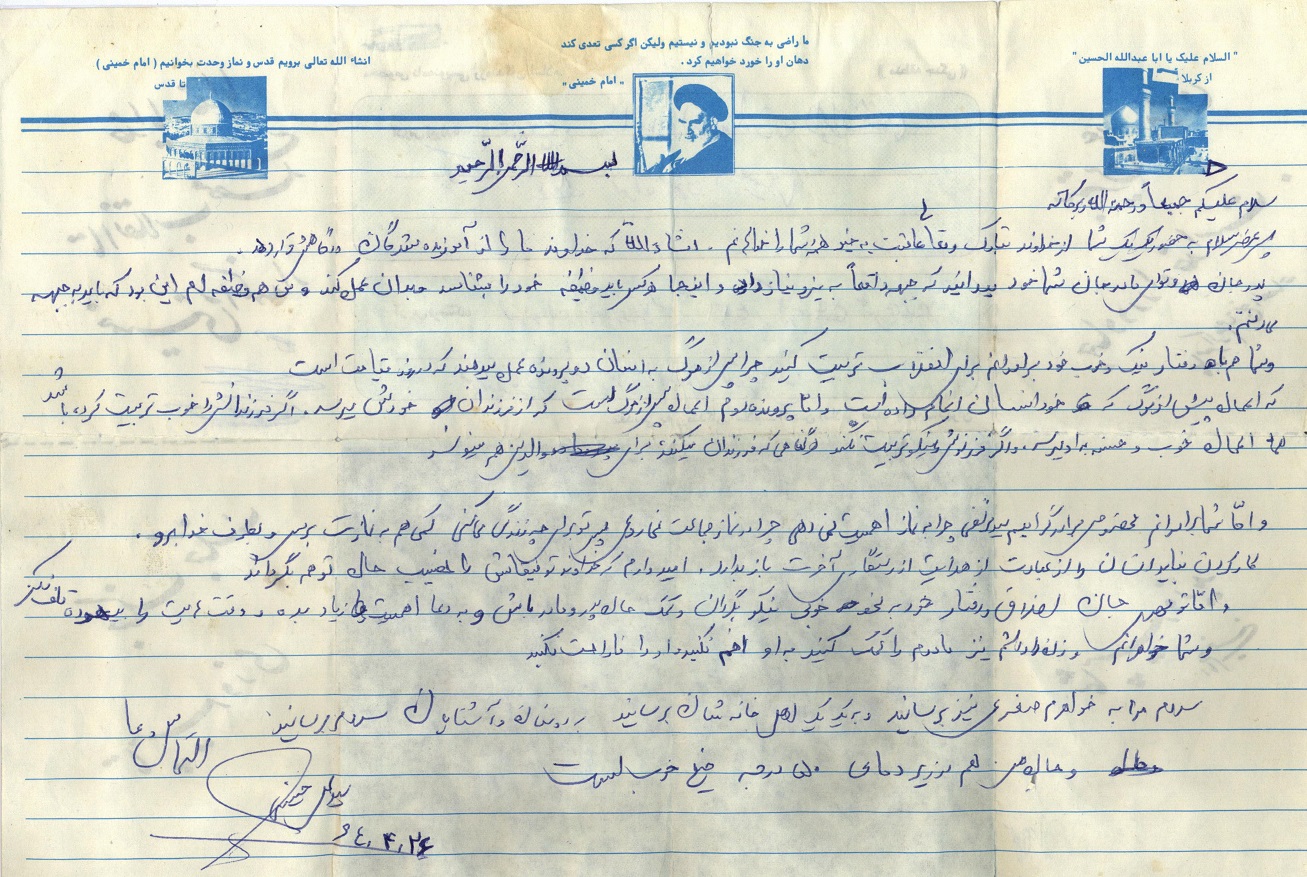 " السلام علیک یا ابا عبدالله الحسین "
از کربلا
ما راضی به جنگ نبودیم و نیستیم ولیکن اگر کسی تعدی کند
دهان او را خورد خواهیم کرد .
" امام خمینی "
انشاء الله تعالی برویم قدس و نماز وحدت بخوانیم ( امام خمینی )
تا قدس
بسم الله الرّحمن الرّحیم
سلام علیکم جمیعاً و رحمة الله و برکاته
پس از عرض سلام به حضور یک یک شما از خداوند تبارک و تعالی عاقبت به خیری همه شما را خواهانم . انشاء الله که خداوند ما را از آمرزیده شدگان درگاهش قرار دهد .
پدر جان و توای مادر جان شما خود میدانید که جبهه واقعاً به نیرو نیاز دارد و اینجا هر کس باید وظیفه خود را بشناسد و بدان عمل کند و من هم وظیفه ام این بود که باید به جبهه
می رفتم.
و شما هم با رفتار نیک و خوب خود برادرانم برای انقلاب تربیت کنید چرا پس از مرگ به انسان دو پرونده عمل میدهند که روز قیامت است
که اعمال پیش از مرگ که خود انسان انجام داده است و امّا پرونده دوّم اعمال پس از مرگ است که از فرزندان خودش میرسد . اگر فرزندانش را خوب تربیت کرده باشد
اعمال خوب و حسنه به او میرسد و اگر فرزندش را نیکو تربیت نکند گناهی که فرزندان میکنند برای والدین هم مینویسند
و امّا شما برادرانم چرا به نماز اهمیت نمی دهی چرا در نماز جماعت نمی روی پس تو برای چه زندگی می کنی کمی هم به نمازت برس و بطرف خدا برو .
کار کردن نباید انسان را از عبادت از هدایت از رستگاری آخرت باز بدارد . امیدوارم که خداوند توفیقاتش را نصیب حال توجه بگرداند
و امّا تو جان اخلاق و رفتار خود به نحو خوبی نیکو بگردان و کمک حال پدر و مادر باش و به دعا اهمیت زیاد بده و وقت هایت را بیهوده تلف نکن
و شما خواهرانم و زن داداشم نیز مادرم را کمک کنید به او اخم نکنید و او را ناراحت نکنید
سلام مرا به خواهرم صغری نیز برسانید و به یک یک اهل خانه شان برسانید به دوستان و آشنایان سلام برسانید
و حال من هم در زیر دمای ۵۰ درجه خیلی خوب است
التماس دعا
۶۴.۴.۲۴